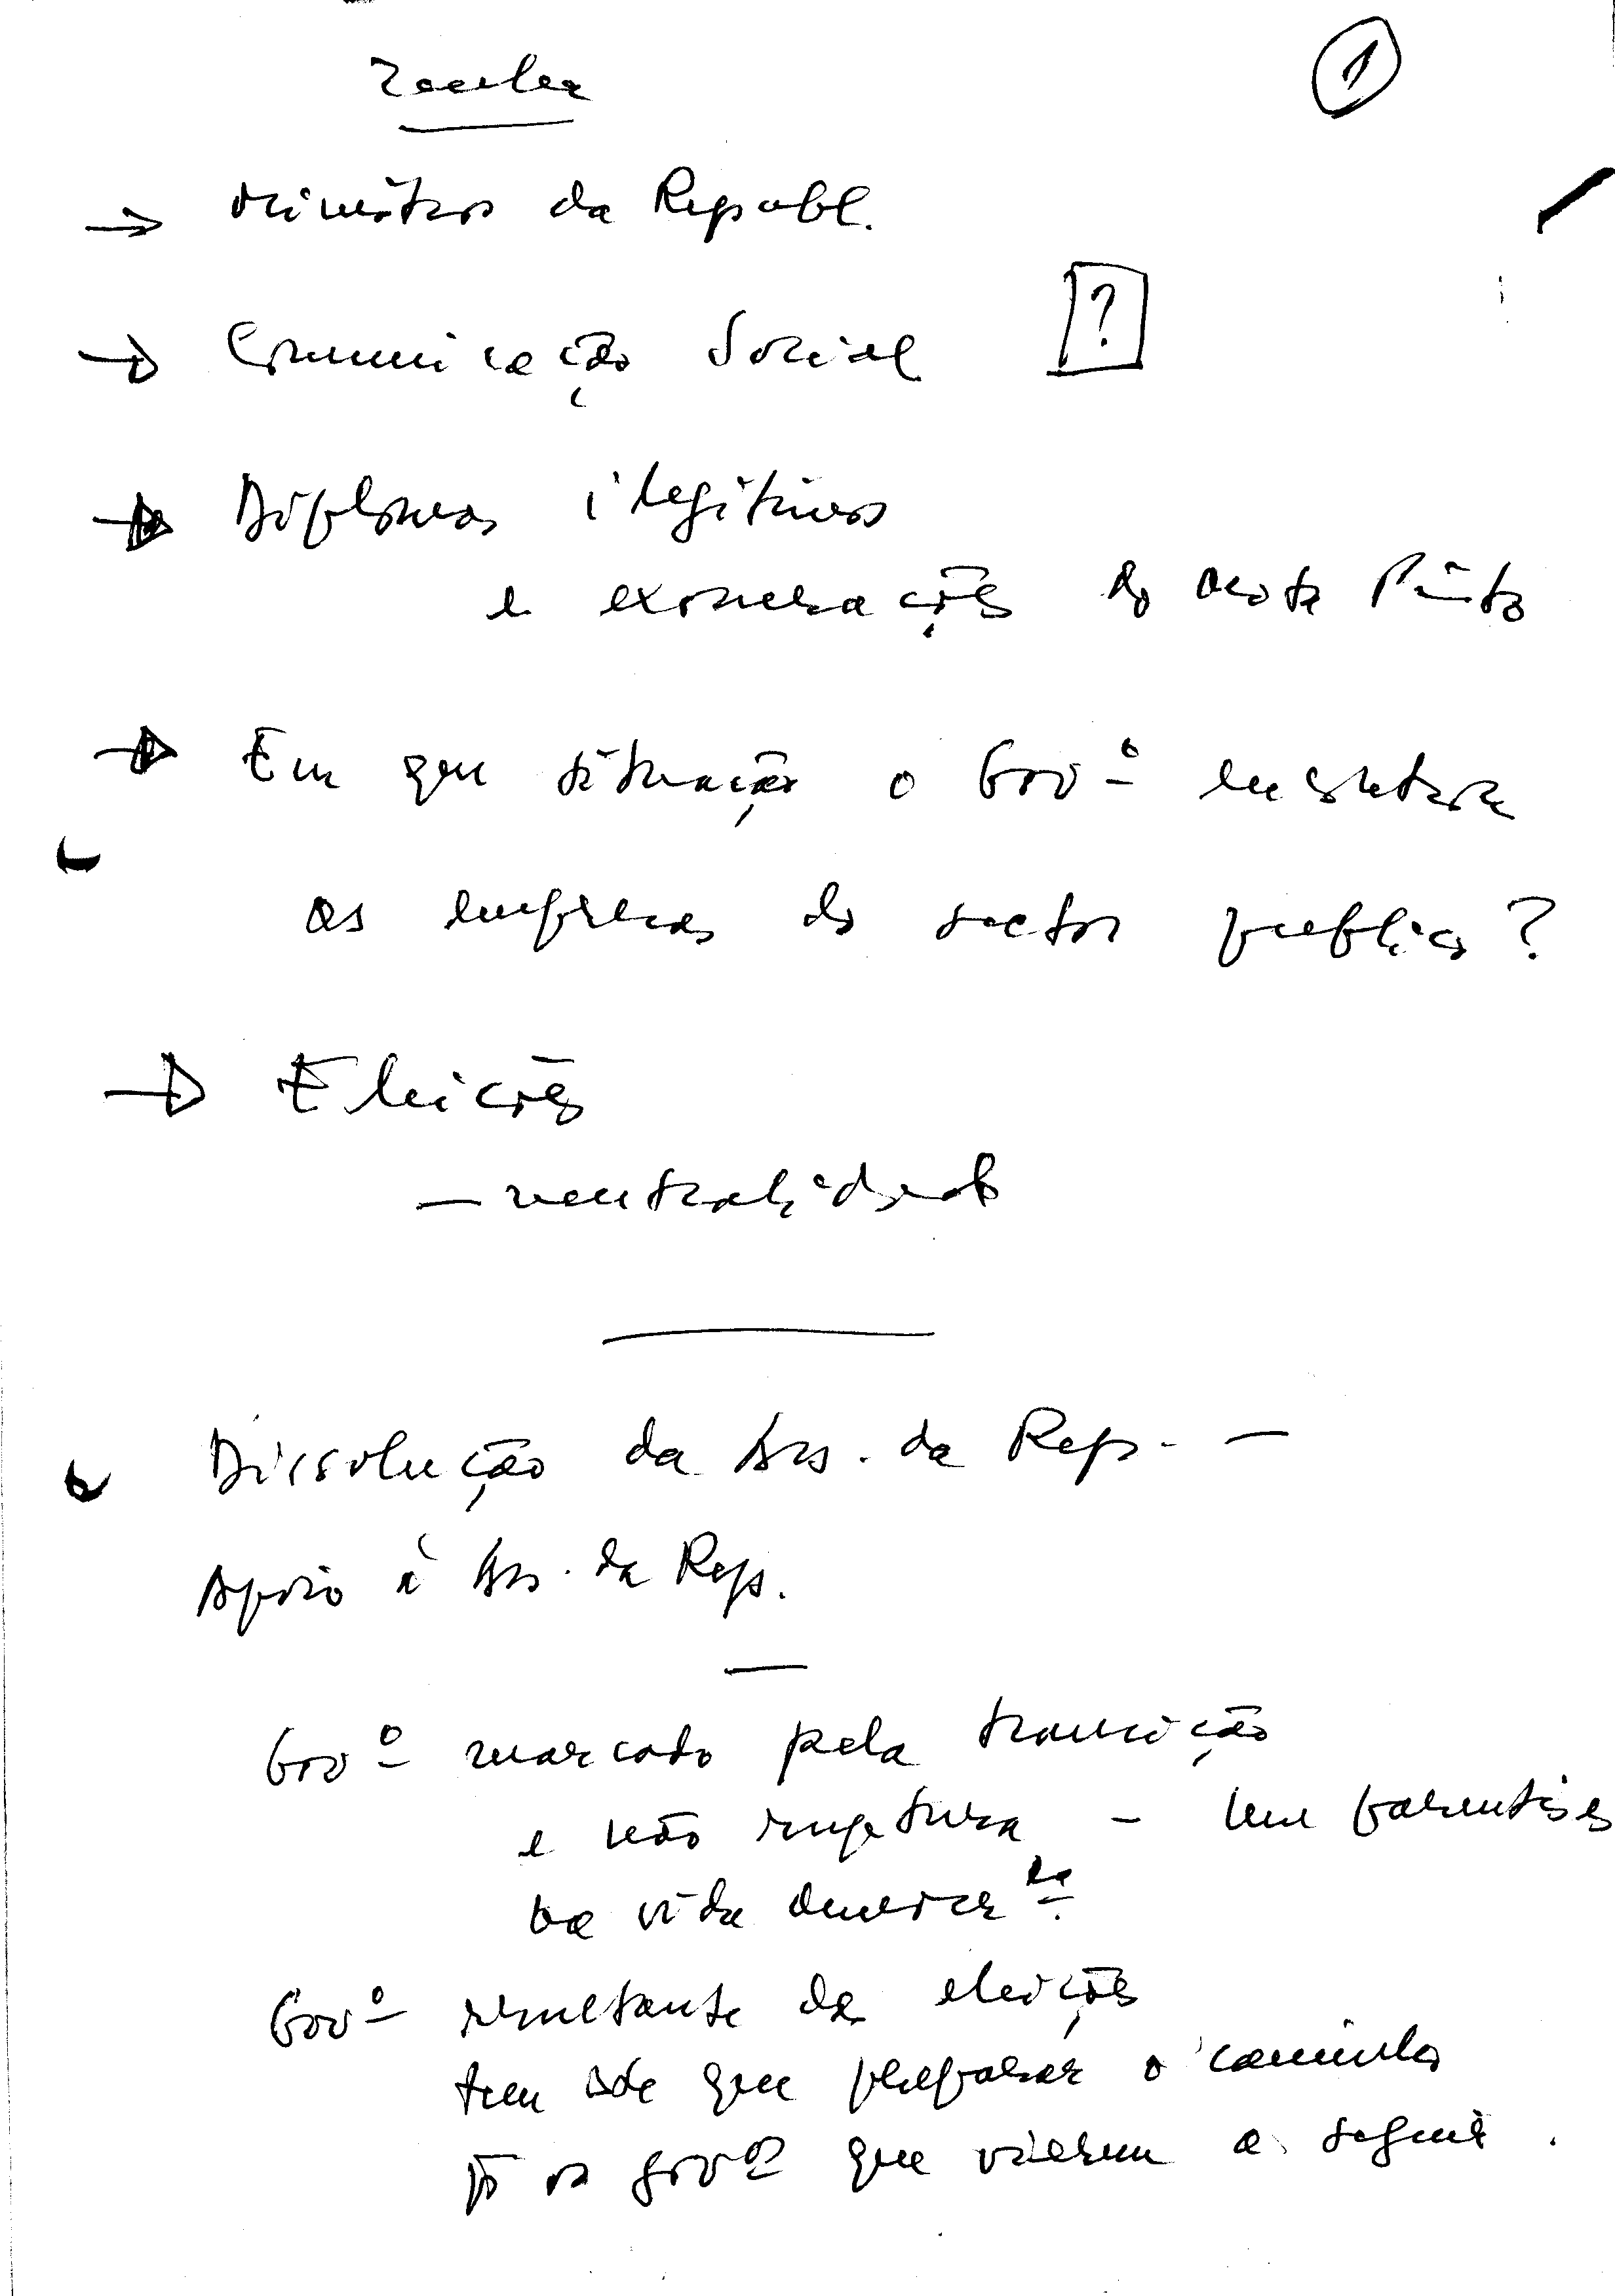 1
→ Ministros da Republ.
→ Comunicação Social [?]
→ Diplomas ilegítimos
e exonerações do Mota Pinto
→ Em que situação o Govº encontrou
as empresas do sector publico?
→ Eleições
— neutralidade
Dissolução da Ass. da Rep. —
Apoio à Ass. da Rep.
Govº marcado pela transição
e não ruptura - um parentisis
na vida
Govº resultante de eleições
tem de que preparar o caminho
pª os govºs que vierem a seguir.